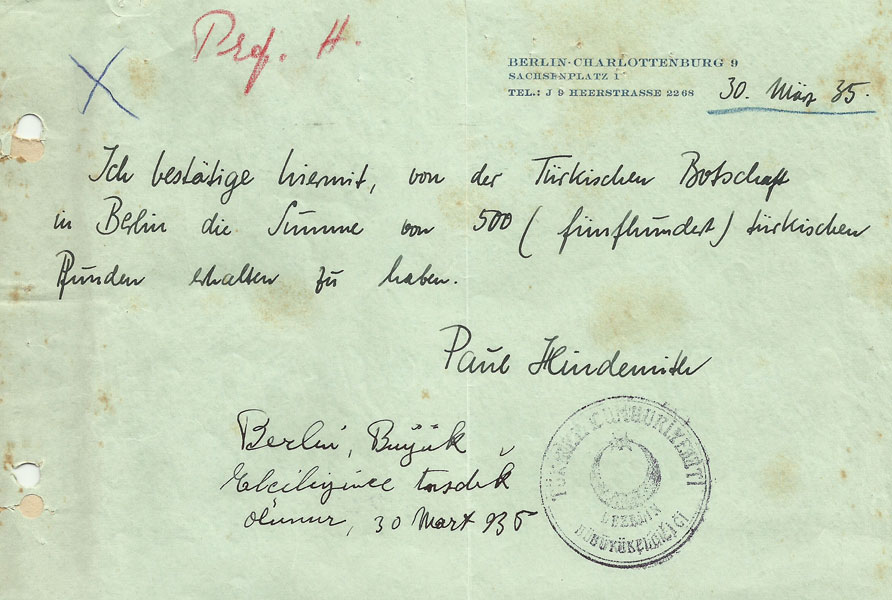 Prof. H.
BERLIN-CHARLOTTENBURG 9
SACHSENPLATZ 1
TEL.: J 9 HEERSTRASSE 2268
30. März 35.
Ich bestätige hiermit, von der Türkischen Botschaft
in Berlin die Summe von 500 (fünfhundert) türkischen
Pfunden erhalten zu haben.
Paul Hindemith
Berlin, Büyük
Elciliğince tasdik
olunur, 30 Mart 935
BERLİN